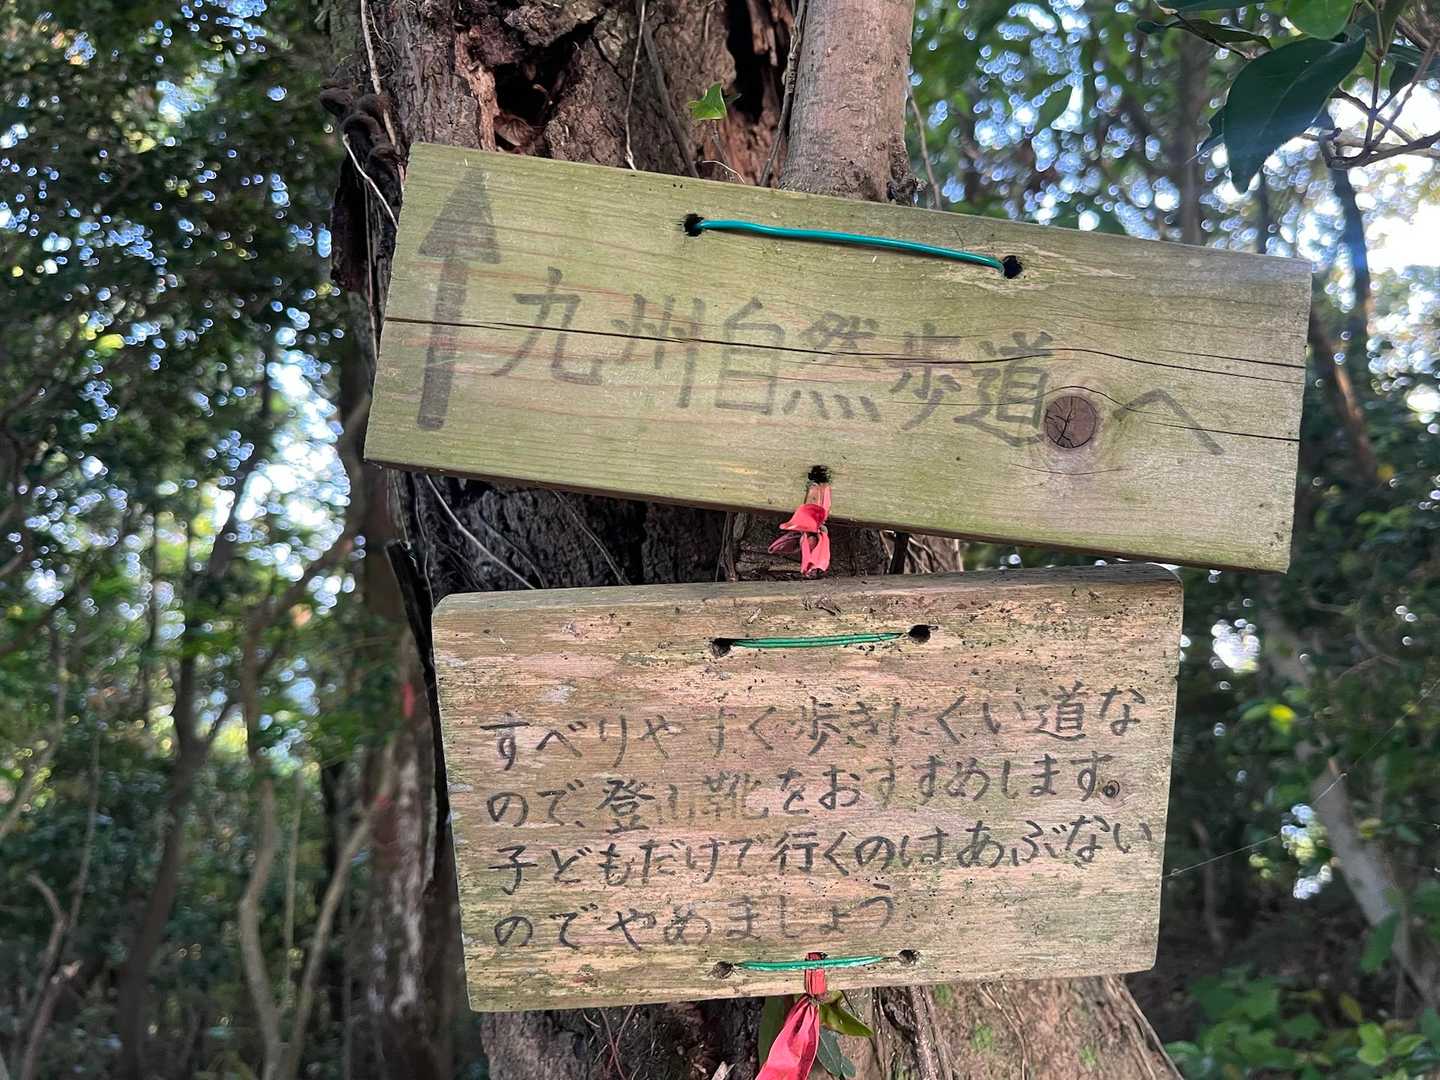 ↑ 九州自然歩道へ
すべりやすく歩きにくい道な
ので、登山靴をおすすめします。
子どもだけで行くのはあぶない
のでやめましょう。